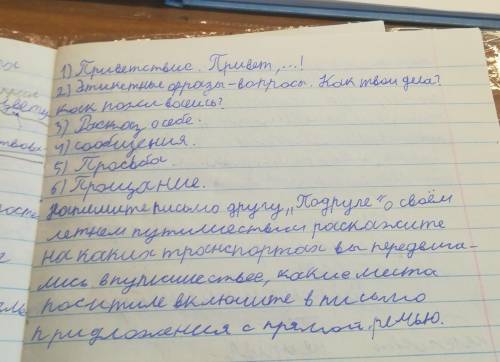 1) Приветствие. Привет,...!
2) Этикетные фразы-вопросы. Как твои дела?
как поживаешь?
3) Рассказ о себе.
4) сообщения.
5) Просьба.
6) Прощание.
Напишите письмо другу „Подруге" о своём
летнем путишествии раскажите
на каких транспортах вы передвига-
лись в путишествее, какие места
поситиле включите в письмо
придложения с прямой речью.